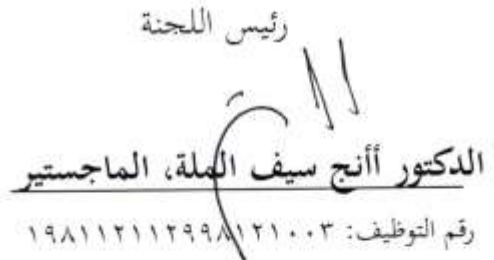 رئيس اللجنة
الدكتور أأنج سيف الملة، الماجستير
رقم التوظيف: ١٩٨١١٢١١٢٩٩٨١٢١٠٠٣